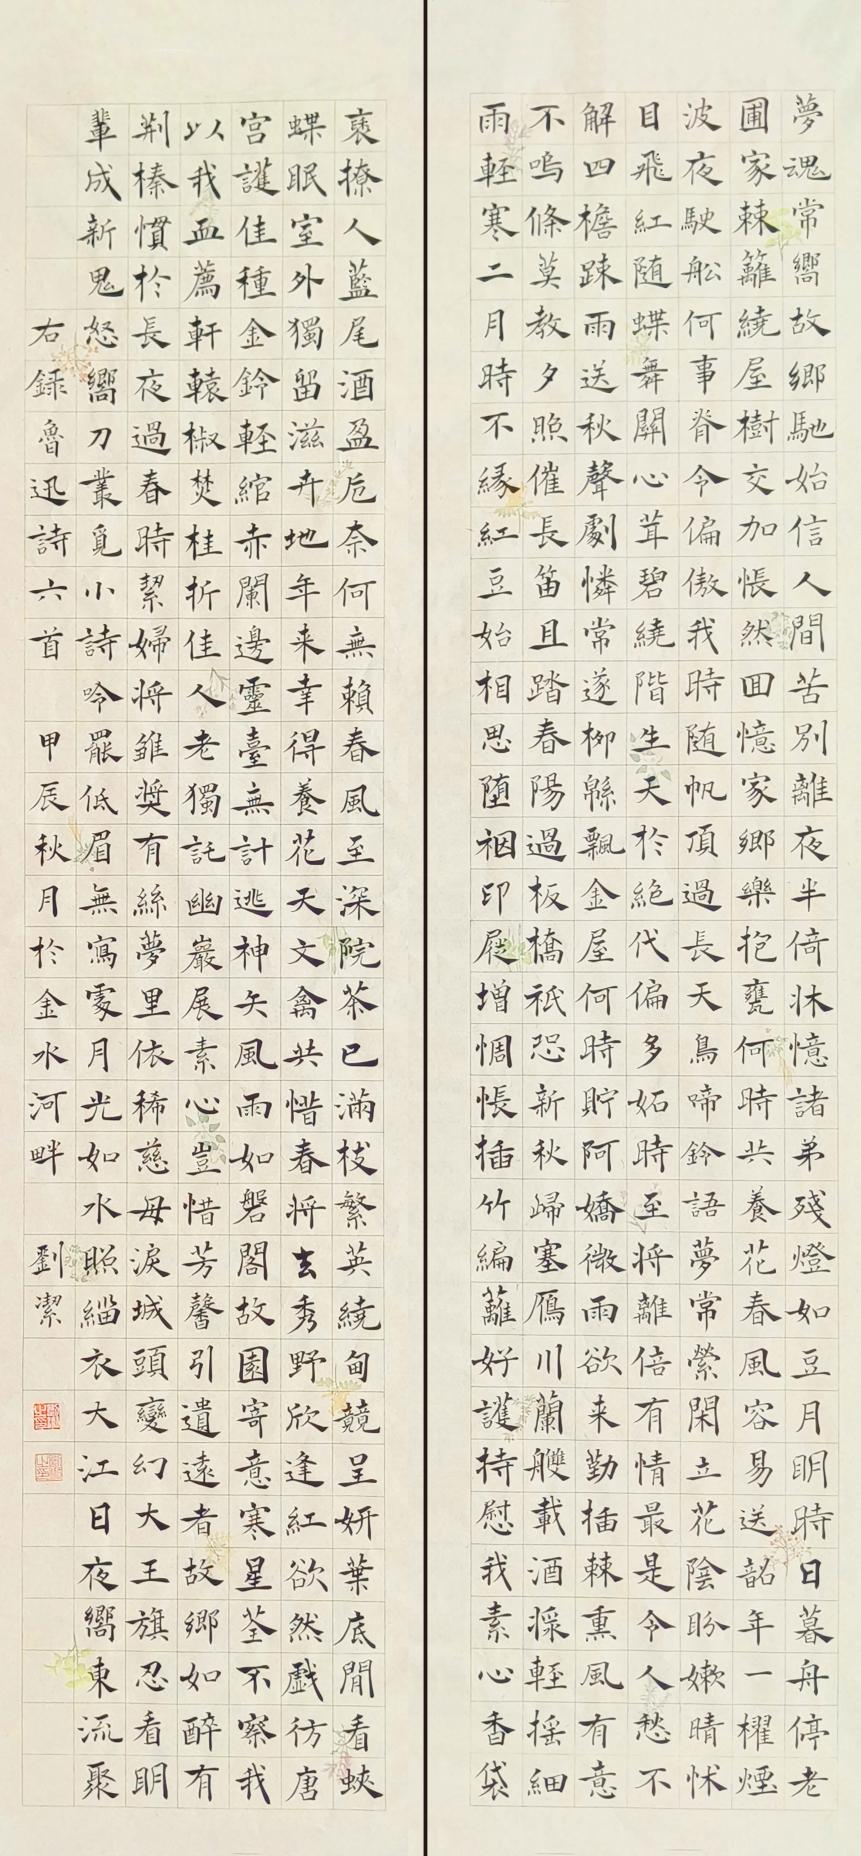 夢魂常嚮故鄉馳始信人間苦別離夜半倚牀憶諸弟殘燈如豆月明時日暮舟停老
圃家棘籬繞屋樹交加悵然囬憶家鄉樂抱甕何時共養花春風容易送韶年一櫂煙
波夜駛船何事脊令偏傲我時随帆頂過長天鳥啼鈴語夢常縈閑立花陰盼嫩晴怵
目飛紅随蝶舞關心茸碧繞階生天於絕代偏多妬時至將離倍有情最是令人愁不
解四檐踈雨送秋聲劇憐常逐柳緜飄金屋何時貯阿嬌微雨欲来勤插棘熏風有意
不嗚條莫教夕照催長笛且踏春陽過板橋衹恐新秋歸塞鴈川蘭艭載酒槳輕揺細
雨輕寒二月時不緣紅豆始相思墮裀印屐增惆悵插竹編籬好護持慰我素心香袋
褏撩人藍尾酒盈卮奈何無賴春風至深院茶已滿枝繁英繞甸競呈妍葉底閒看蛺
蝶眠室外獨留滋卉地年来幸得養花天文禽共惜春將去秀野欣逢紅欲然戲彷唐
宮護佳種金鈴輕綰赤闌邊靈臺無計逃神矢風雨如磐閣故園寄意寒星荃不察我
以我血薦軒轅椒焚桂折佳人老獨託幽巖展素心豈惜芳馨引遺遠者故鄉如醉有
荆榛慣於長夜過春時絜婦將雛奬有絲夢里依稀慈母淚城頭變幻大王旗忍看明
輩成新鬼怒嚮刀叢覓小詩吟罷低眉無寫處月光如水照緇衣大江日夜嚮東流聚
右録魯迅詩六首 甲辰秋月於金水河畔 劉潔